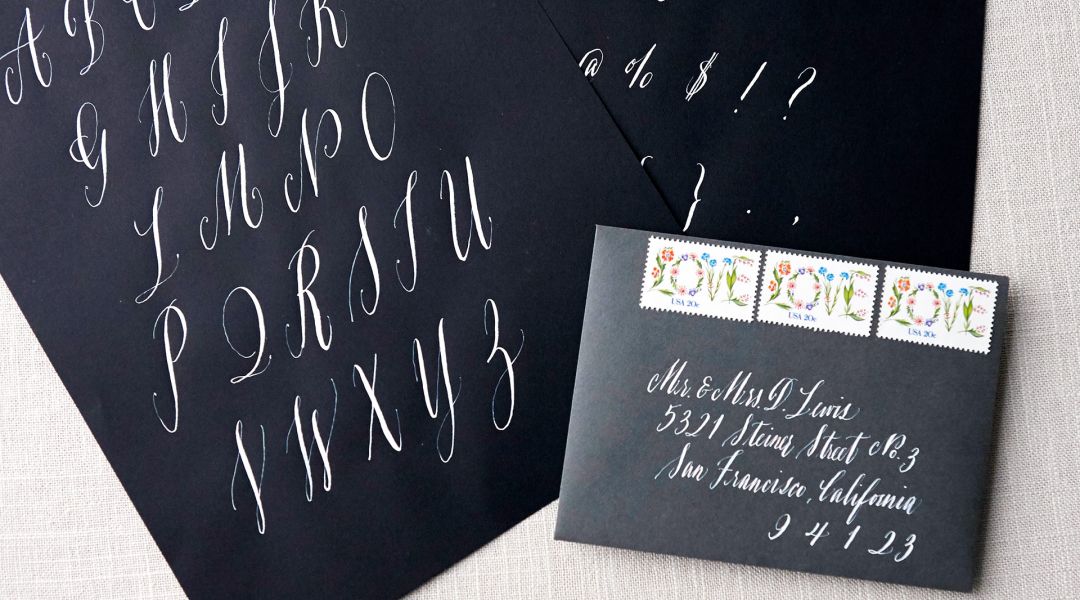 A B C
G H I J K
L M N O
P Q R S T U
V W X Y Z
@ % $ ! ?
} . ,
LOVE LOVE LOVE
USA 20c USA 20c USA 20c
Mr. & Mrs. D Lewis
5321 Steiner Street No. 3
San Francisco, California
9 4 1 2 3